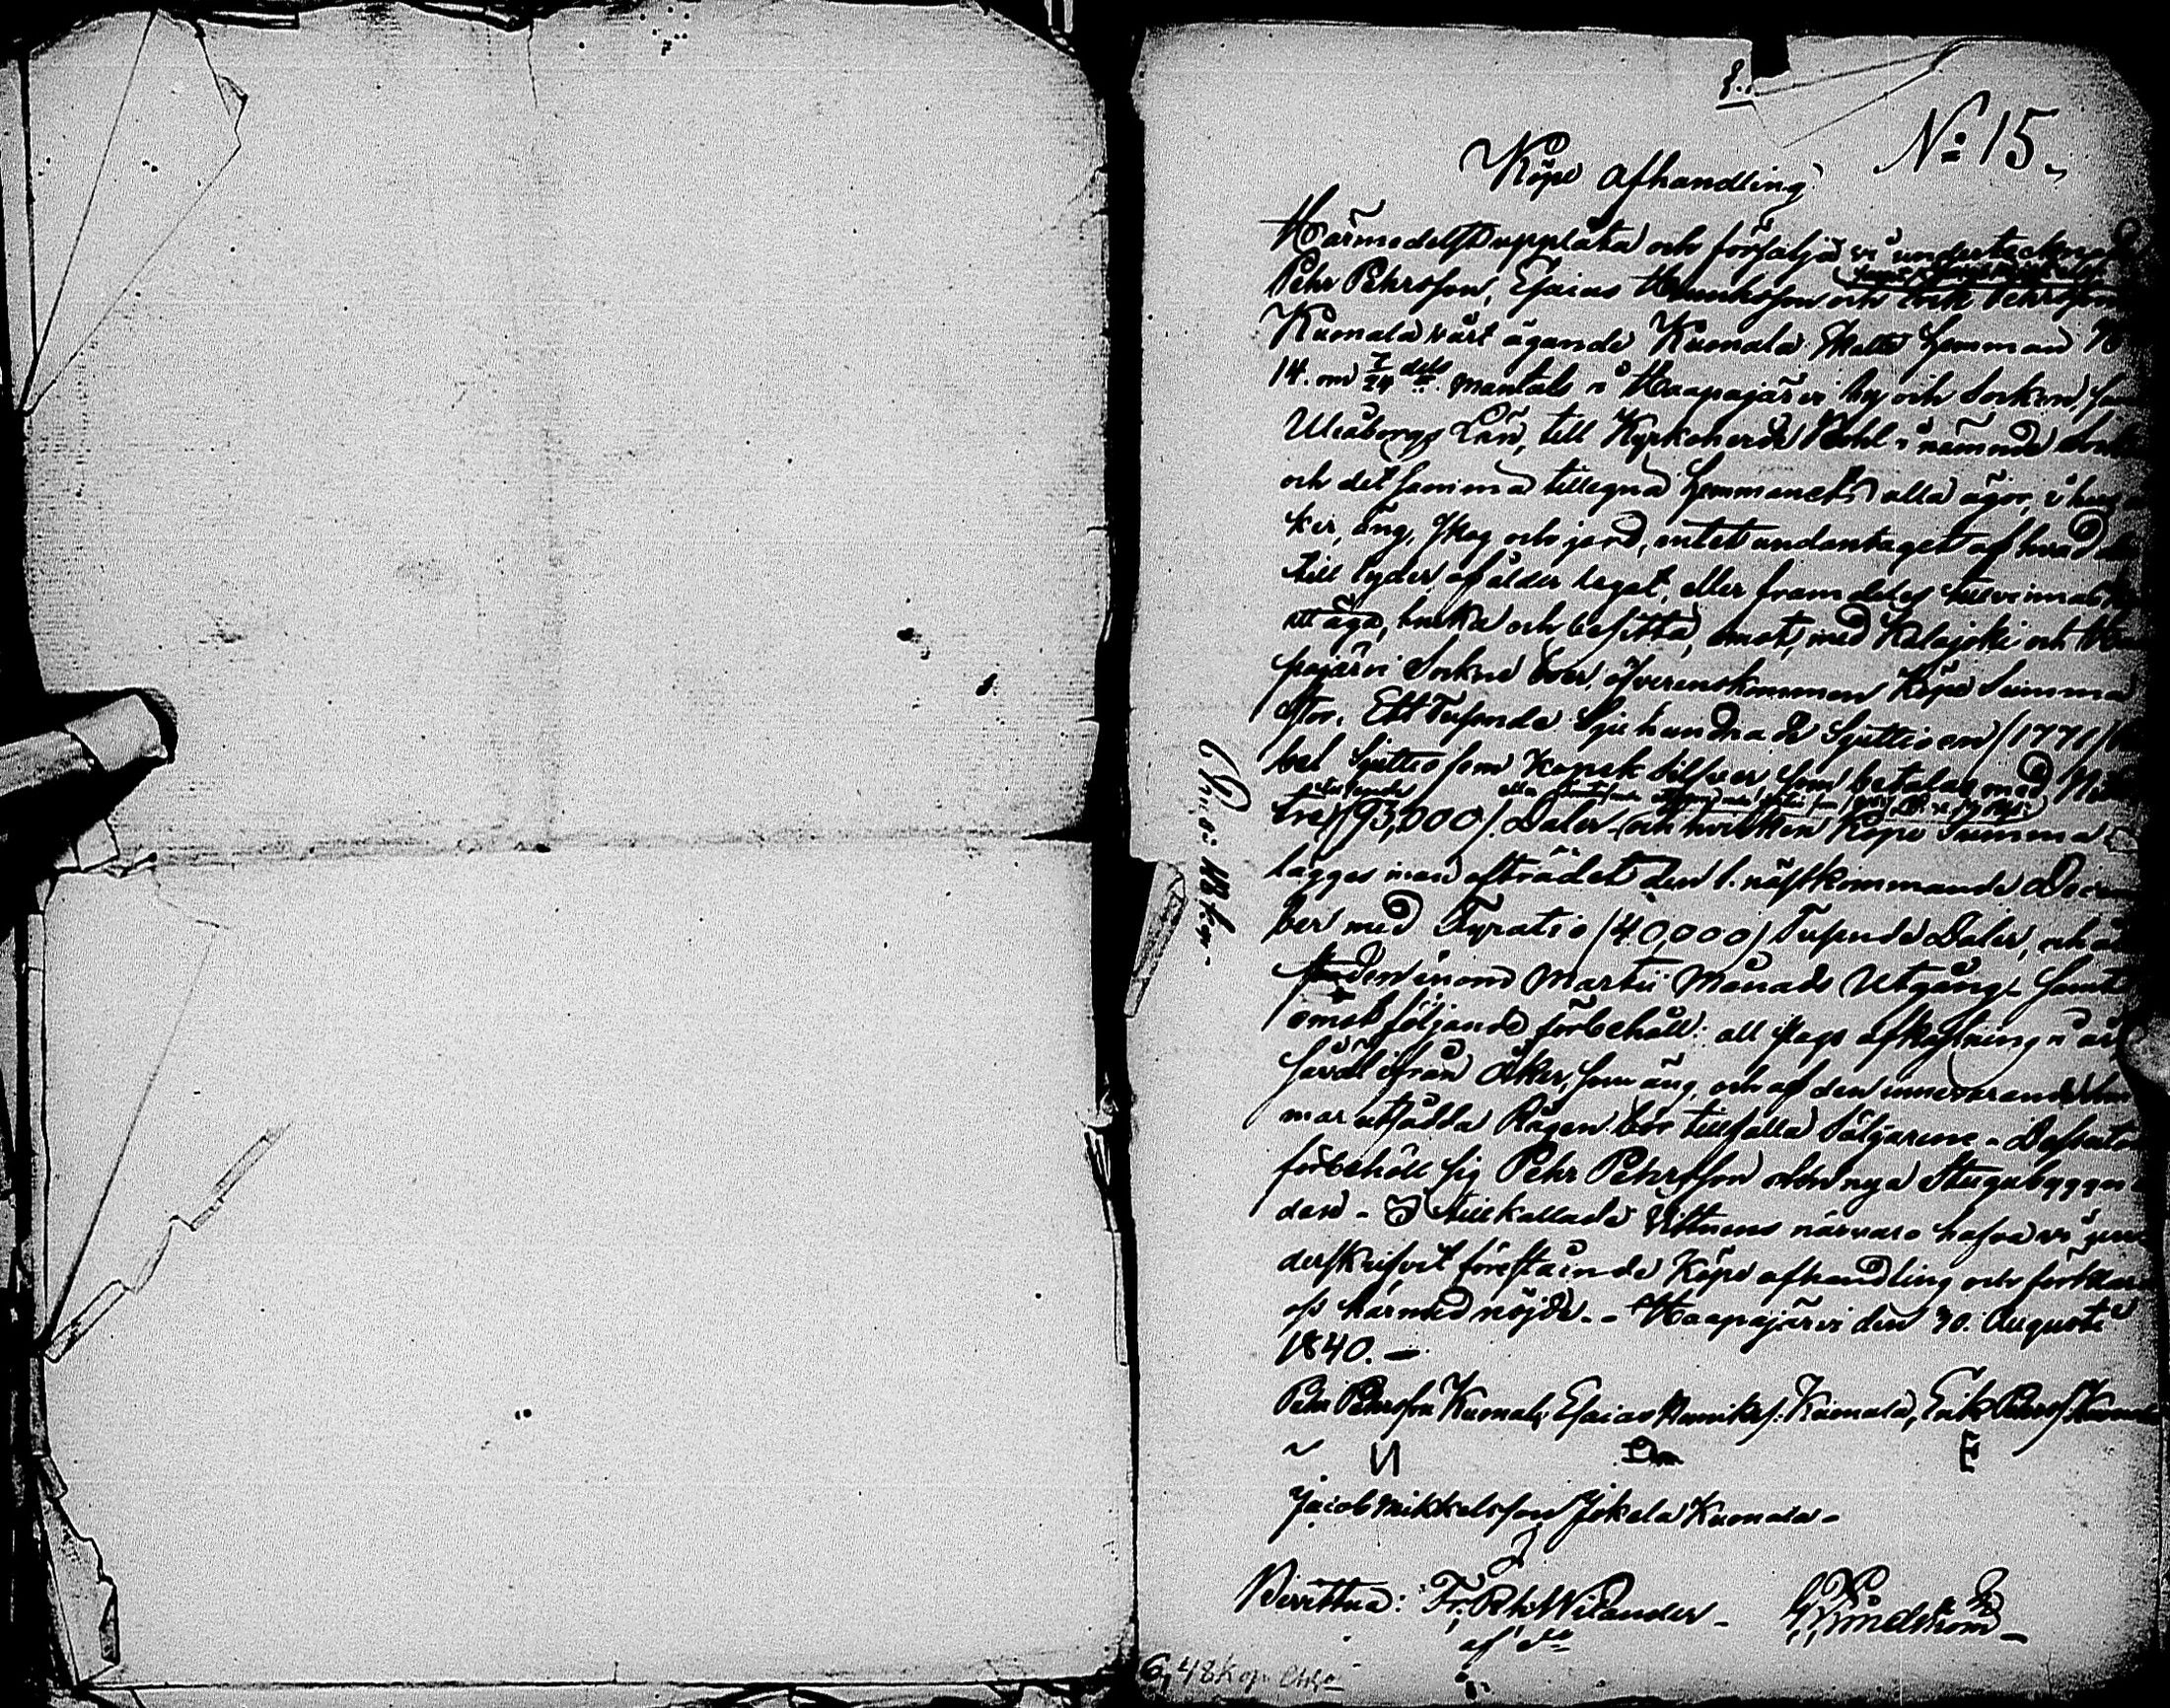 8.
No: 15.
Köpe afhandling.
Härmedelst upplåta och försälja vi undertecknade
Pehr Pehrsson, Esaias Hennriksson och Erik Pehrsson
Kumala vårt ägande Kumala Skatte Hemman No
14. om 7/24 dels mantal i Haapajärvi by och Socken,
Uleåborgs Län, till Kyrkoherde i nämnde
och det samma tillegna Hemmanets alla ägor, i hus
ker, äng, skog och jord, intet undantaget af hvad
till lyder, af ålder legat, eller framdeles tillvinnas
att äga, bruka och besitta, emot, med Kalajoki och Haa
pajärvi Sockne öfverenskommen Köpe Summa
stor, Ett Tusende Sju hundrade Sjuttioen /1771/
bel Sjuttio fem Kopek Silfver som betalas med
tre tusende /93,000/ Daler, och hvilken Köpe Summa
lägges med afträdet den 1. nästkommande Decem
ber med Fyratio /40,000/ Tusende Daler, och
den inom Martii Månads Utgång. Samt
emot följande förbehåll: all slags afkastning i år
såväl ifrån åker, som äng, och af den innevarande
mar utsådda Rågen bör tillfalla Säljarene. Dessutom
förbehåll sig Pehr Pehrsson den nya Stugubyggna
den. I tillkallade Vittnens närvaro hafva vi
derskrifvit förestående Köpe afhandling och förklara
oss härmed nöjde. Haapajärvi den 30. Augusti
1840.
Pehr Pehrsson Kumala, Esaias Hennrikss: Kumala, Erik Pehrss. Kumala
И E
Jacob Mikkelsson Jokela Kumala
Bevittna: Fr. Wilander G. Lindström
6 48 kop.